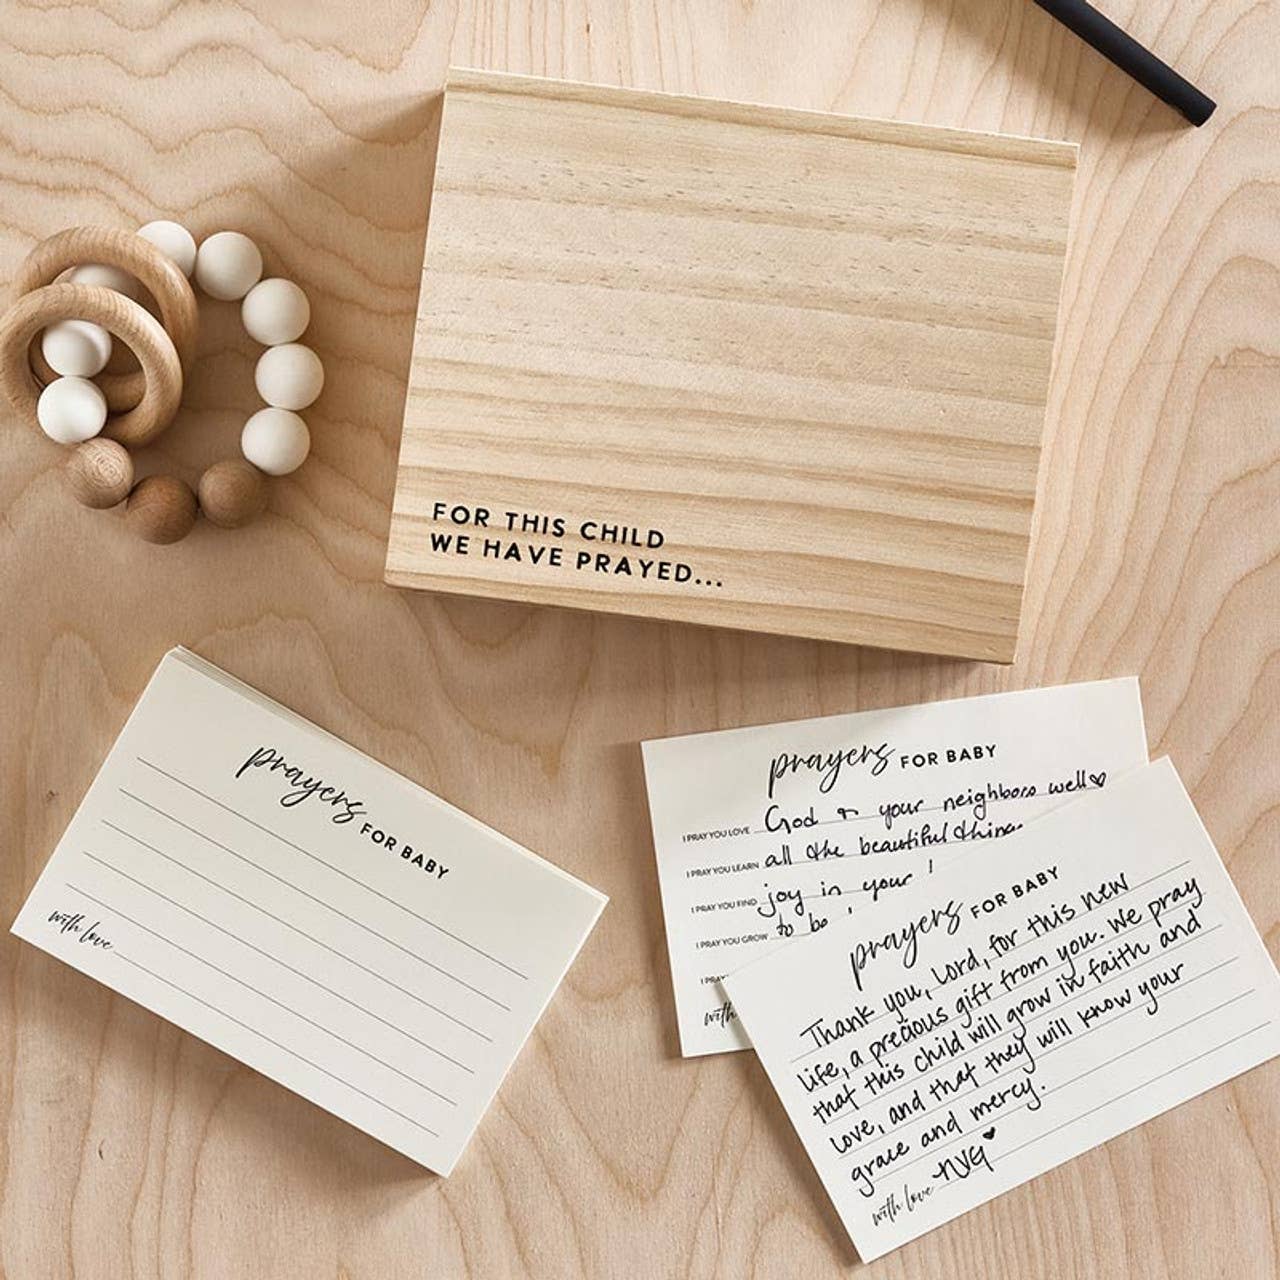 FOR THIS CHILD
WE HAVE PRAYED...
prayers FOR BABY
with love
prayers FOR BABY
I PRAY YOU LOVE God & your neighbors well♡
I PRAY YOU LEARN all the beautiful things
I PRAY YOU FIND joy in your
I PRAY YOU GROW to be
I PRAY
with
prayers FOR BABY
Thank you, Lord, for this new
life, a precious gift from you. We pray
that this child will grow in faith and
love, and that they will know your
grace and mercy.
with love NVG♥